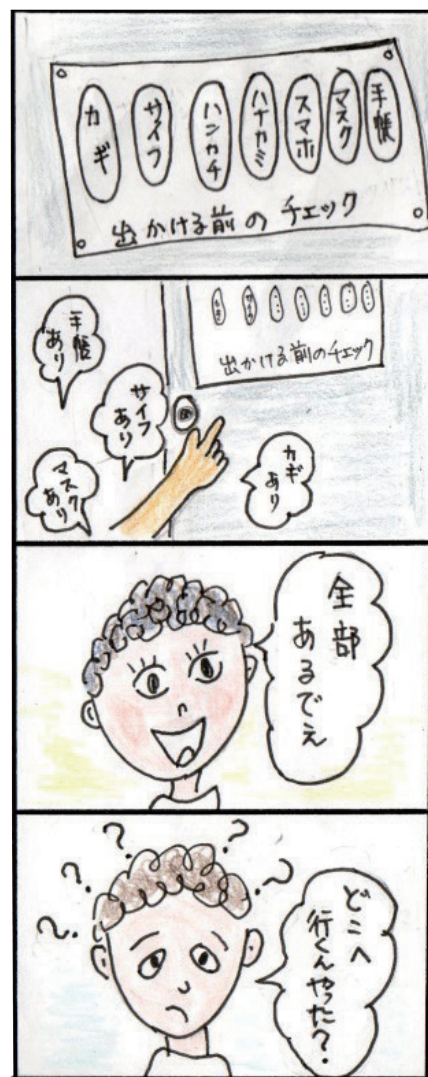 手帳
マスク
スマホ
ハナカミ
ハンカチ
サイフ
カギ
出かける前のチェック
出かける前のチェック
カギ
あり
サイフ
あり
手帳
あり
マスク
あり
全部
あるでえ
どこへ
行くんやった?